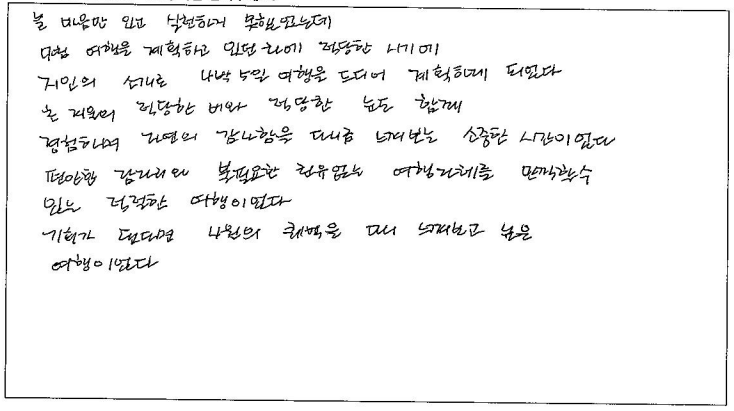 늘 마음만 있고 실천하지 못했었는데
여행을 계획하고 있던 차에 적당한 시기에
지인의 소개로 4박 5일 여행을 드디어 계획하게 되었다
적당한 비와 적당한 눈도 함께
경험하며 자연의 감사함을 다시금 느껴보는 소중한 시간이었다
편안한 잠자리와 불필요한 권유없는 여행자체를 만끽할수
있는 적절한 여행이었다
기회가 된다면 의 을 다시 느껴보고 싶은
여행이었다